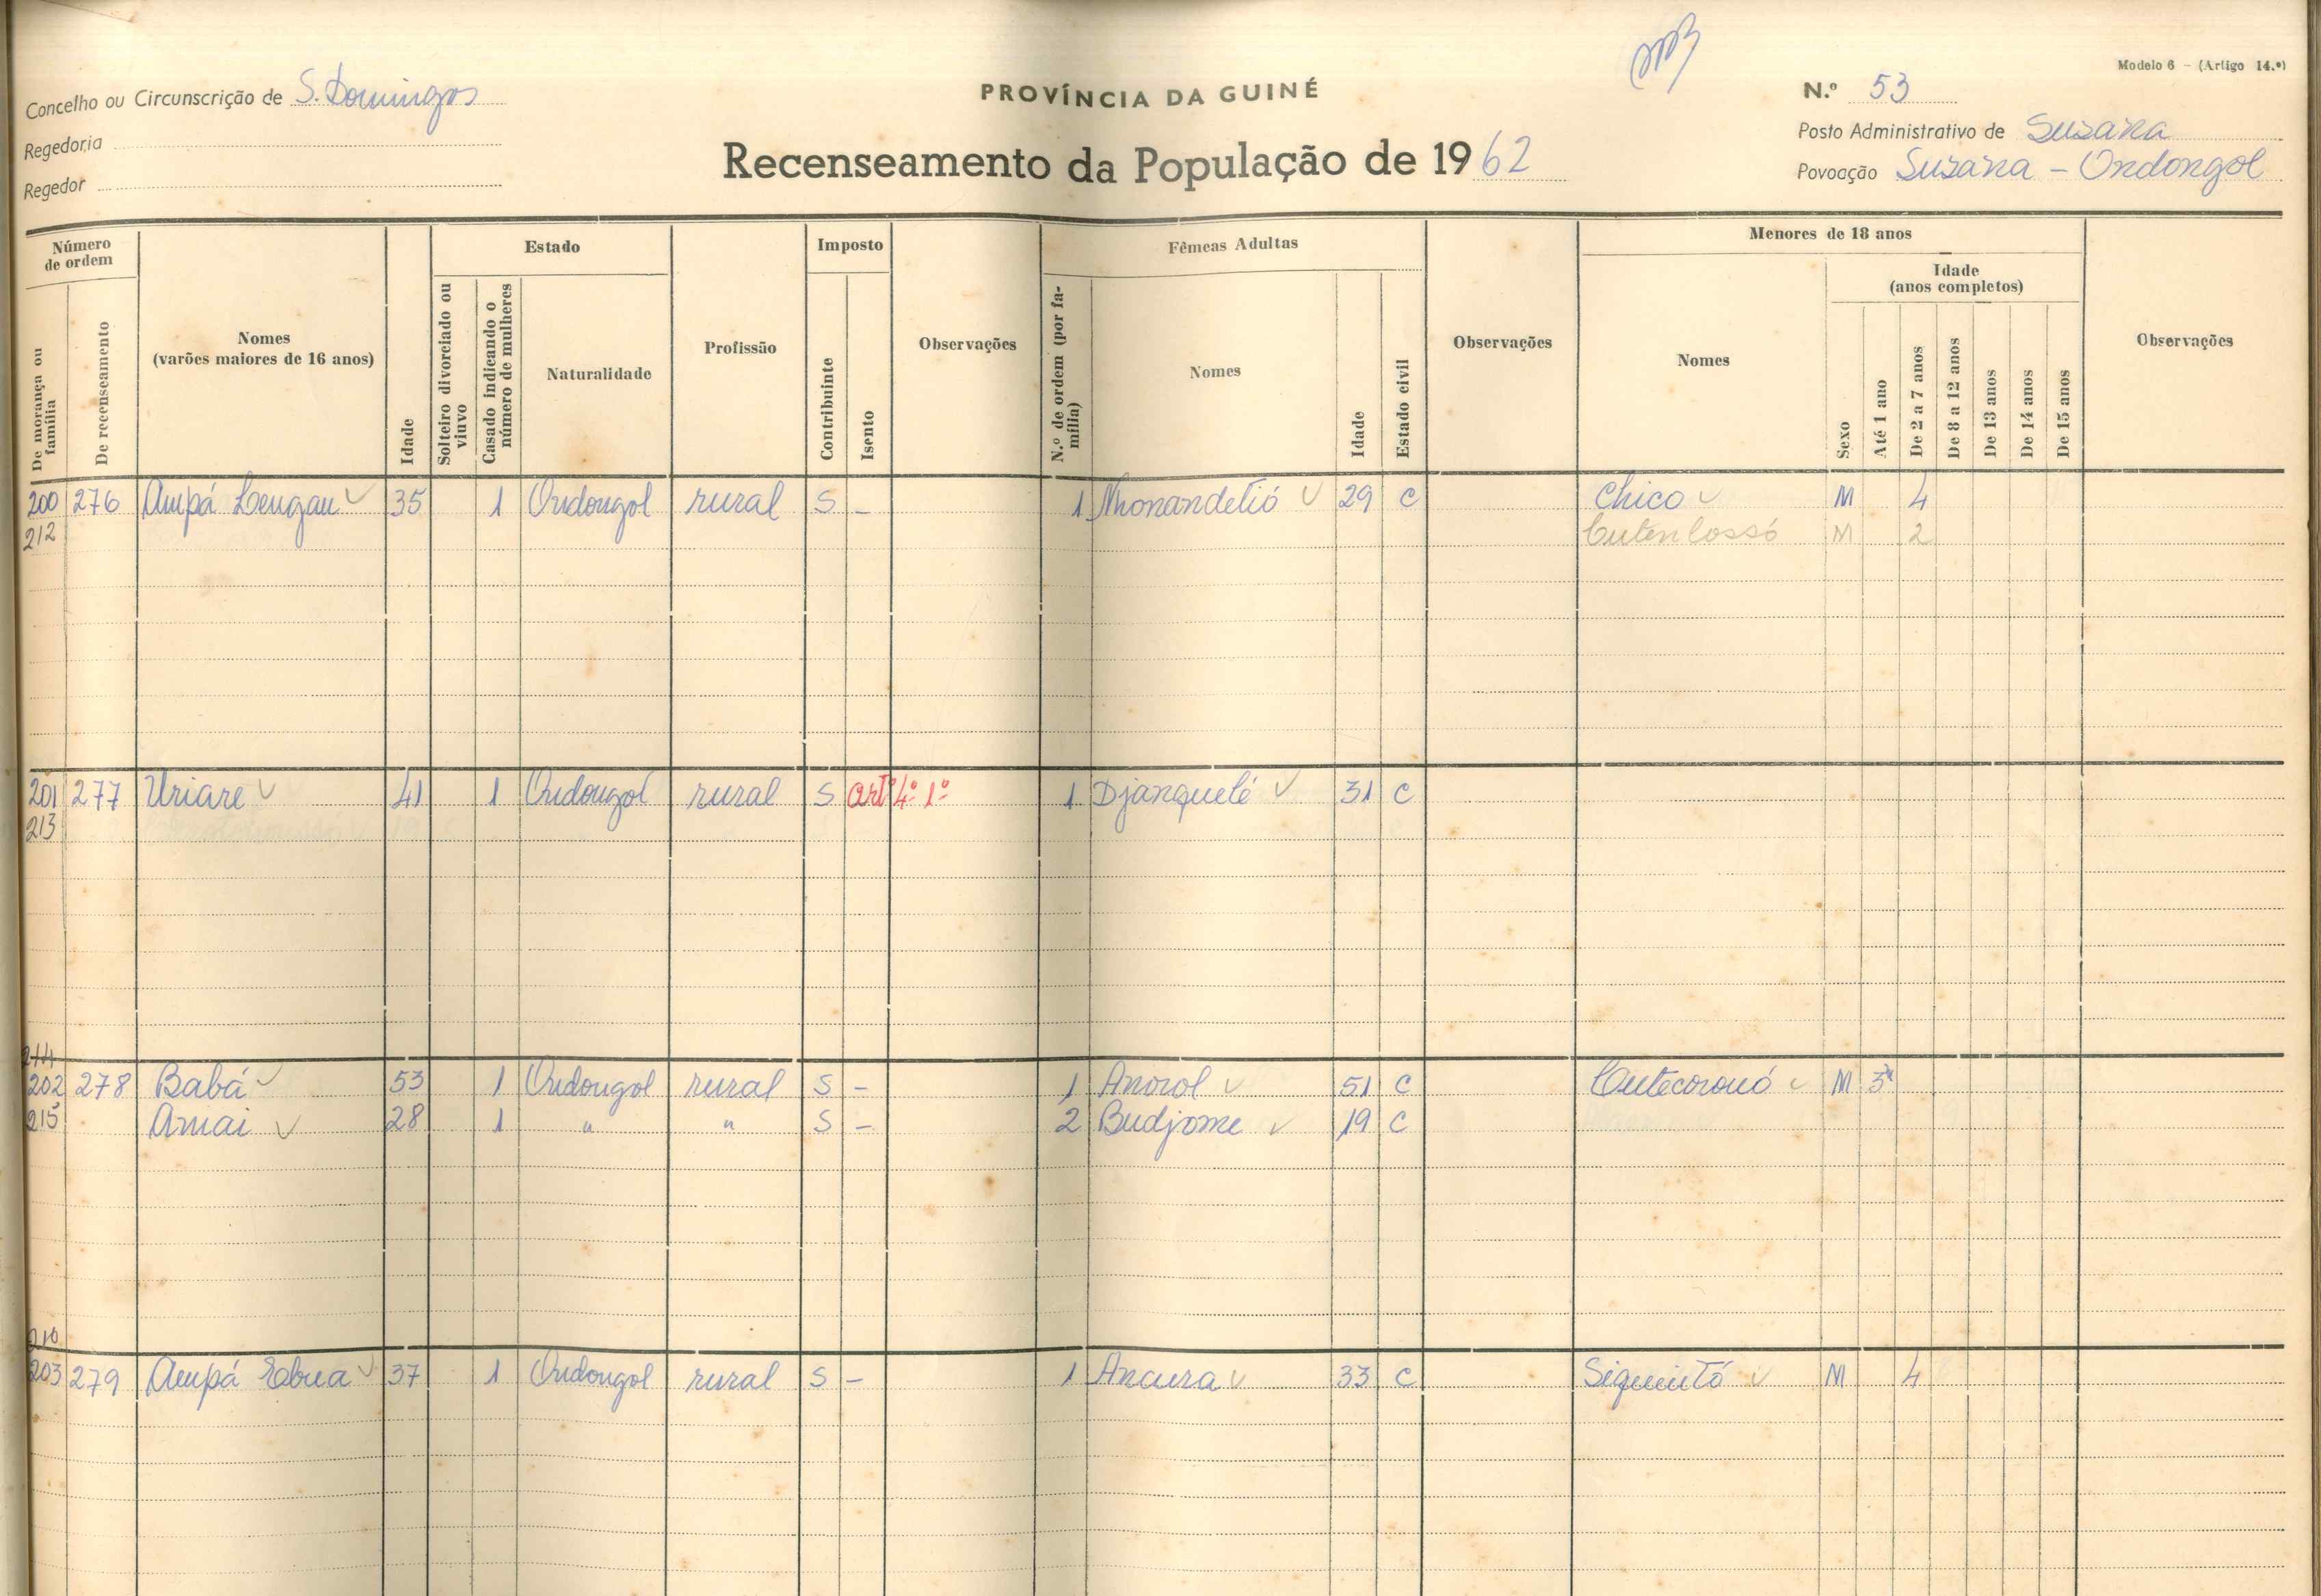 Modelo 6 – (Artigo 14.º)
Concelho ou Circunscrição de S. Domingos
PROVÍNCIA DA GUINÉ
N.º 53
Regedoria
Recenseamento da População de 1962
Posto Administrativo de Suzana
Regedor
Povoação Suzana – Ondongol
Número de ordem
De morança ou família
De recenseamento
Nomes
(varões maiores de 16 anos)
Idade
Estado
Solteiro divorciado ou viuvo
Casado indicando o número de mulheres
Naturalidade
Profissão
Imposto
Contribuinte
Isento
Observações
Fêmeas Adultas
N.º de ordem (por família)
Nomes
Idade
Estado civil
Observações
Menores de 18 anos
Nomes
Sexo
Idade
(anos completos)
Até 1 ano
De 2 a 7 anos
De 8 a 12 anos
De 13 anos
De 14 anos
De 15 anos
Observações
200 276 Ampá Lengau 35 1 Ondongol rural S – 1 Nhonandetió 29 C Chico M 4
212 Cutenlossó M 2
201 277 Uriare 41 1 Ondongol rural S artº 4º 1º 1 Djanquelé 31 C
213
214
202 278 Babá 53 1 Ondongol rural S – 1 Anorol 51 C M
215 Amai 28 1 " " S – 2 Budjome 19 C
216
203 279 Ampá Ebua 37 1 Ondongol rural S – 1 Ancura 33 C M 4